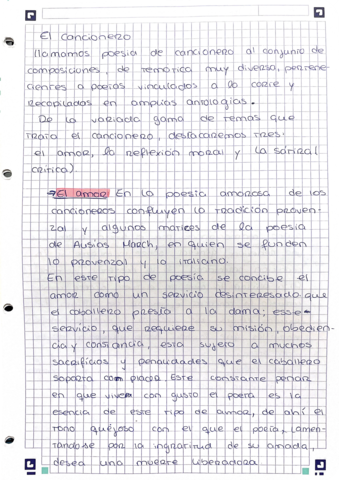 El cancionero
llamamos poesía de cancionero al conjunto de
composiciones, de temática muy diversa, pertene-
cientes a poetas vinculados a la corte y
recopilados en amplias antologías.
De la variada gama de temas que
trata el cancionero, destacaremos tres:
el amor, la reflexión moral y la sátira(
crítica).
→ El amor En la poesía amorosa de los
cancioneros confluyen la tradición proven-
zal y algunos matices de la poesía
de Ausias March, en quien se funden
lo provenzal y lo italiano.
En este tipo de poesía se concibe el
amor como un servicio desinteresado que
el caballero presta a la dama; ese
servicio, que requiere su misión, obedien-
cia y constancia, esta sujeto a muchos
sacrificios y penalidades que el caballero
soporta con placer. Este constante penar
en que vive con gusto el poeta es la
esencia de este tipo de amor, de ahí el
tono quejoso con el que el poeta, lamen-
tándose por la ingratitud de su amada,
desea una muerte liberadora